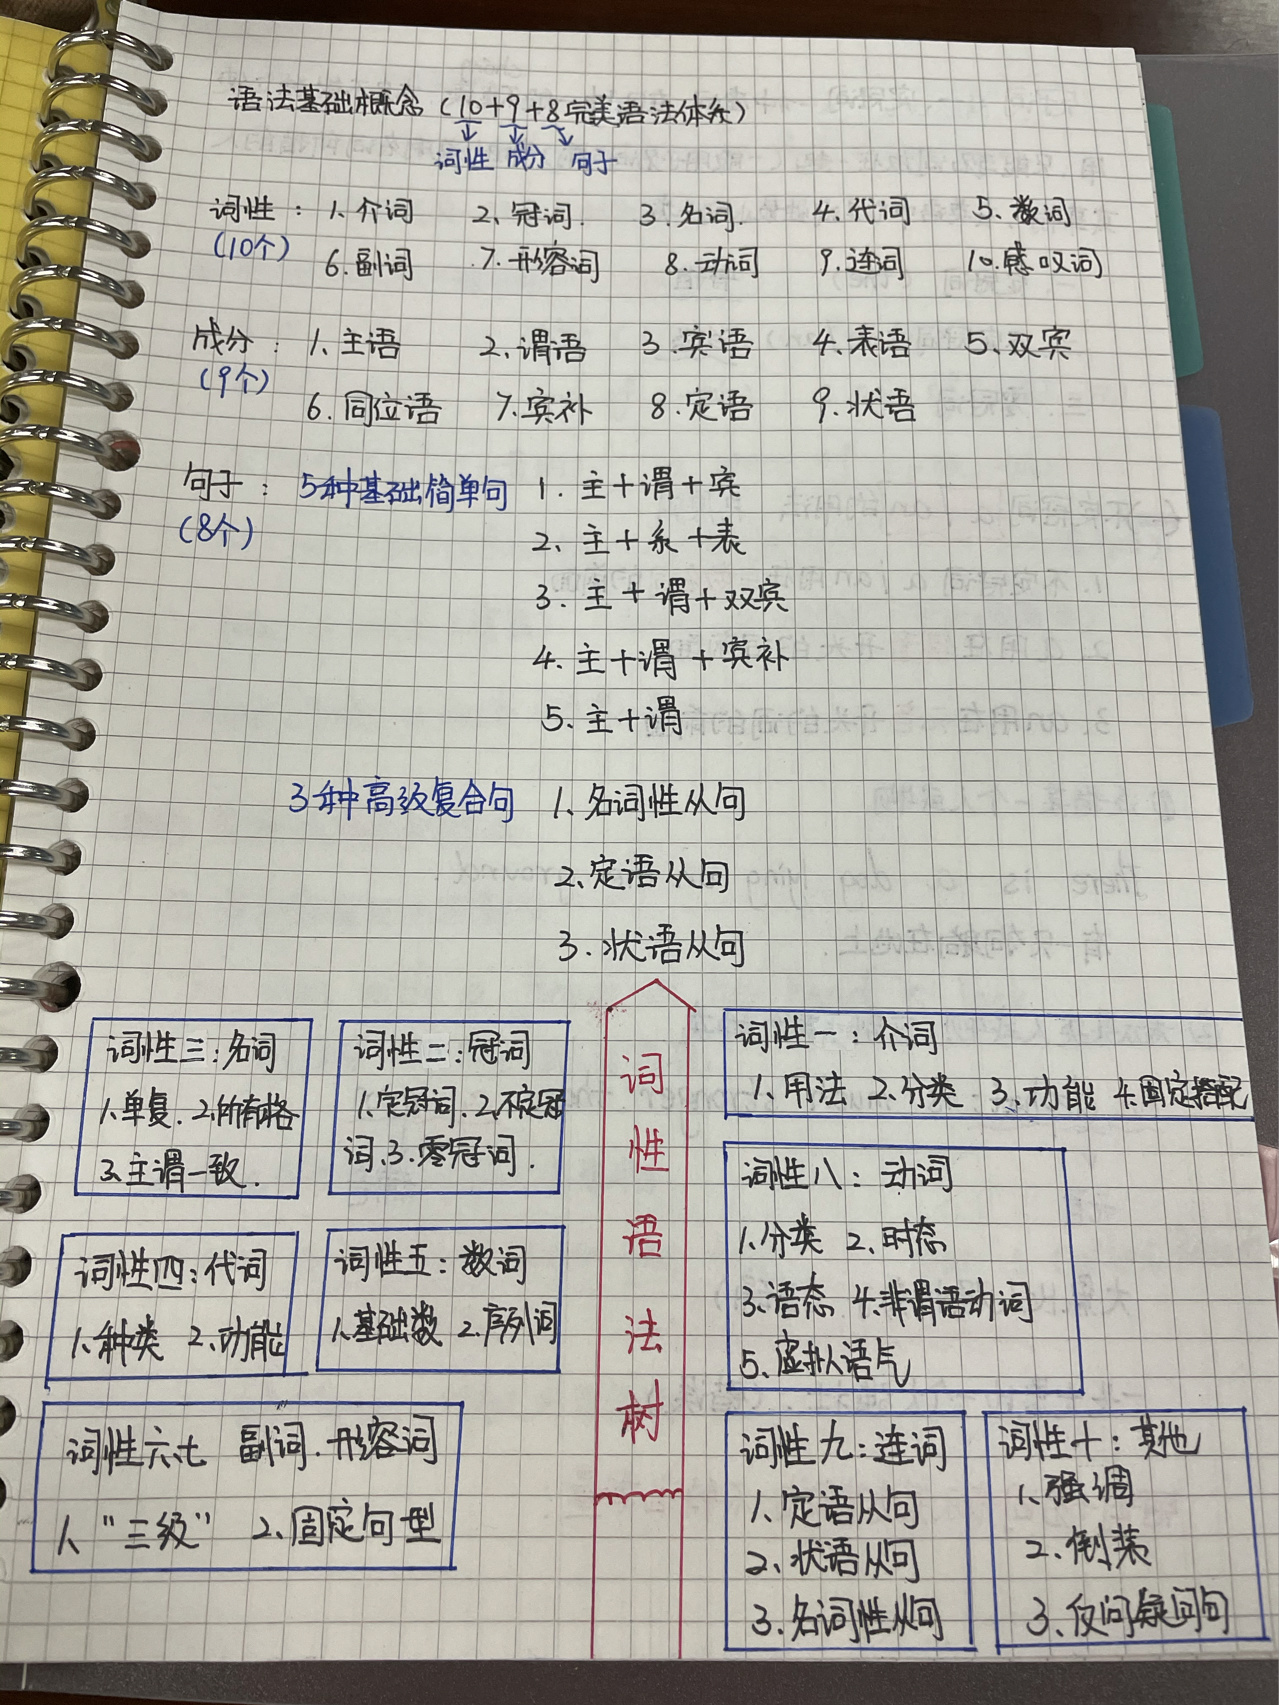 语法基础概念（10+9+8完美语法体系）
词性 成分 句子
词性： 1、介词 2、冠词. 3、名词. 4、代词 5、数词
（10个） 6、副词 7、形容词 8、动词 9、连词 10、感叹词
成分： 1、主语 2、谓语 3、宾语 4、表语 5、双宾
（9个） 6、同位语 7、宾补 8、定语 9、状语
句子： 5种基础简单句 1. 主+谓+宾
（8个） 2、主+系+表
3. 主+谓+双宾
4. 主+谓+宾补
5、主+谓
3种高级复合句 1、名词性从句
2、定语从句
3. 状语从句
词性语法树
词性一：介词
1、用法 2、分类 3、功能 4、固定搭配
词性二：冠词
1、定冠词、2、不定冠
词、3、零冠词.
词性三：名词
1、单复. 2、所有格
3、主谓一致.
词性四：代词
1、种类 2、功能
词性五：数词
1、基础数 2、序列词
词性六七 副词、形容词
1、“三级” 2、固定句型
词性八：动词
1、分类 2、时态
3、语态 4、非谓语动词
5、虚拟语气
词性九：连词
1、定语从句
2、状语从句
3、名词性从句
词性十：其他
1、强调
2、倒装
3、反问疑问句